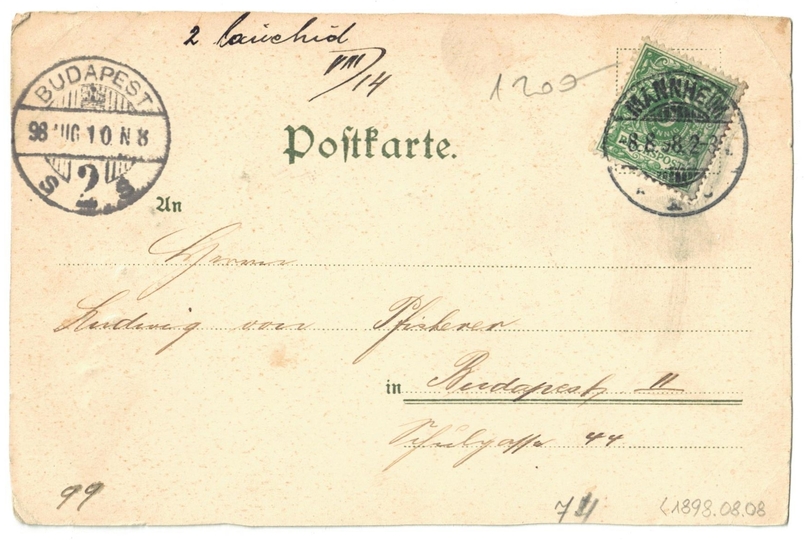 2
VIII/14
1200
BUDAPEST
98 AUG 10 N 8
2
S S
MANNHEIM
8.8.98. 2-3
Poſtkarte.
An
Herrn
Ludwig von Pfisterer
in Budapest II
Schulgasse 44
99
74
1898.08.08